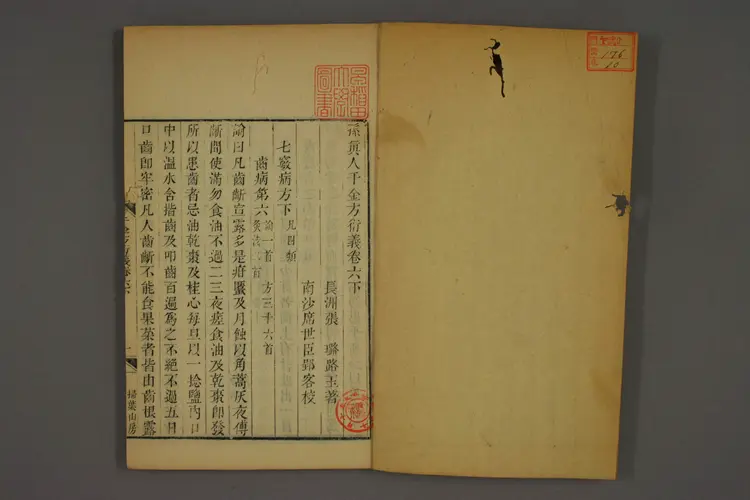 孫眞人千金方衍義卷六下
長洲張 璐路玉著
南沙席世臣郢客校
七竅病方下 凡四類
齒病第六 論一首 方三十六首
灸法二首
論曰凡齒齗宣露多是疳䘌及月蝕以角蒿灰夜傅
齗間使滿勿食油不過二三夜瘥食油及乾棗卽發
所以患齒者忌油乾棗及桂心每旦以一捻鹽內口
中以溫水含揩齒及叩齒百遍爲之不絕不過五日
口齒卽牢密凡人齒齗不能食果菜者皆由齒根露
掃葉山房
早稻田大學圖書
126
10